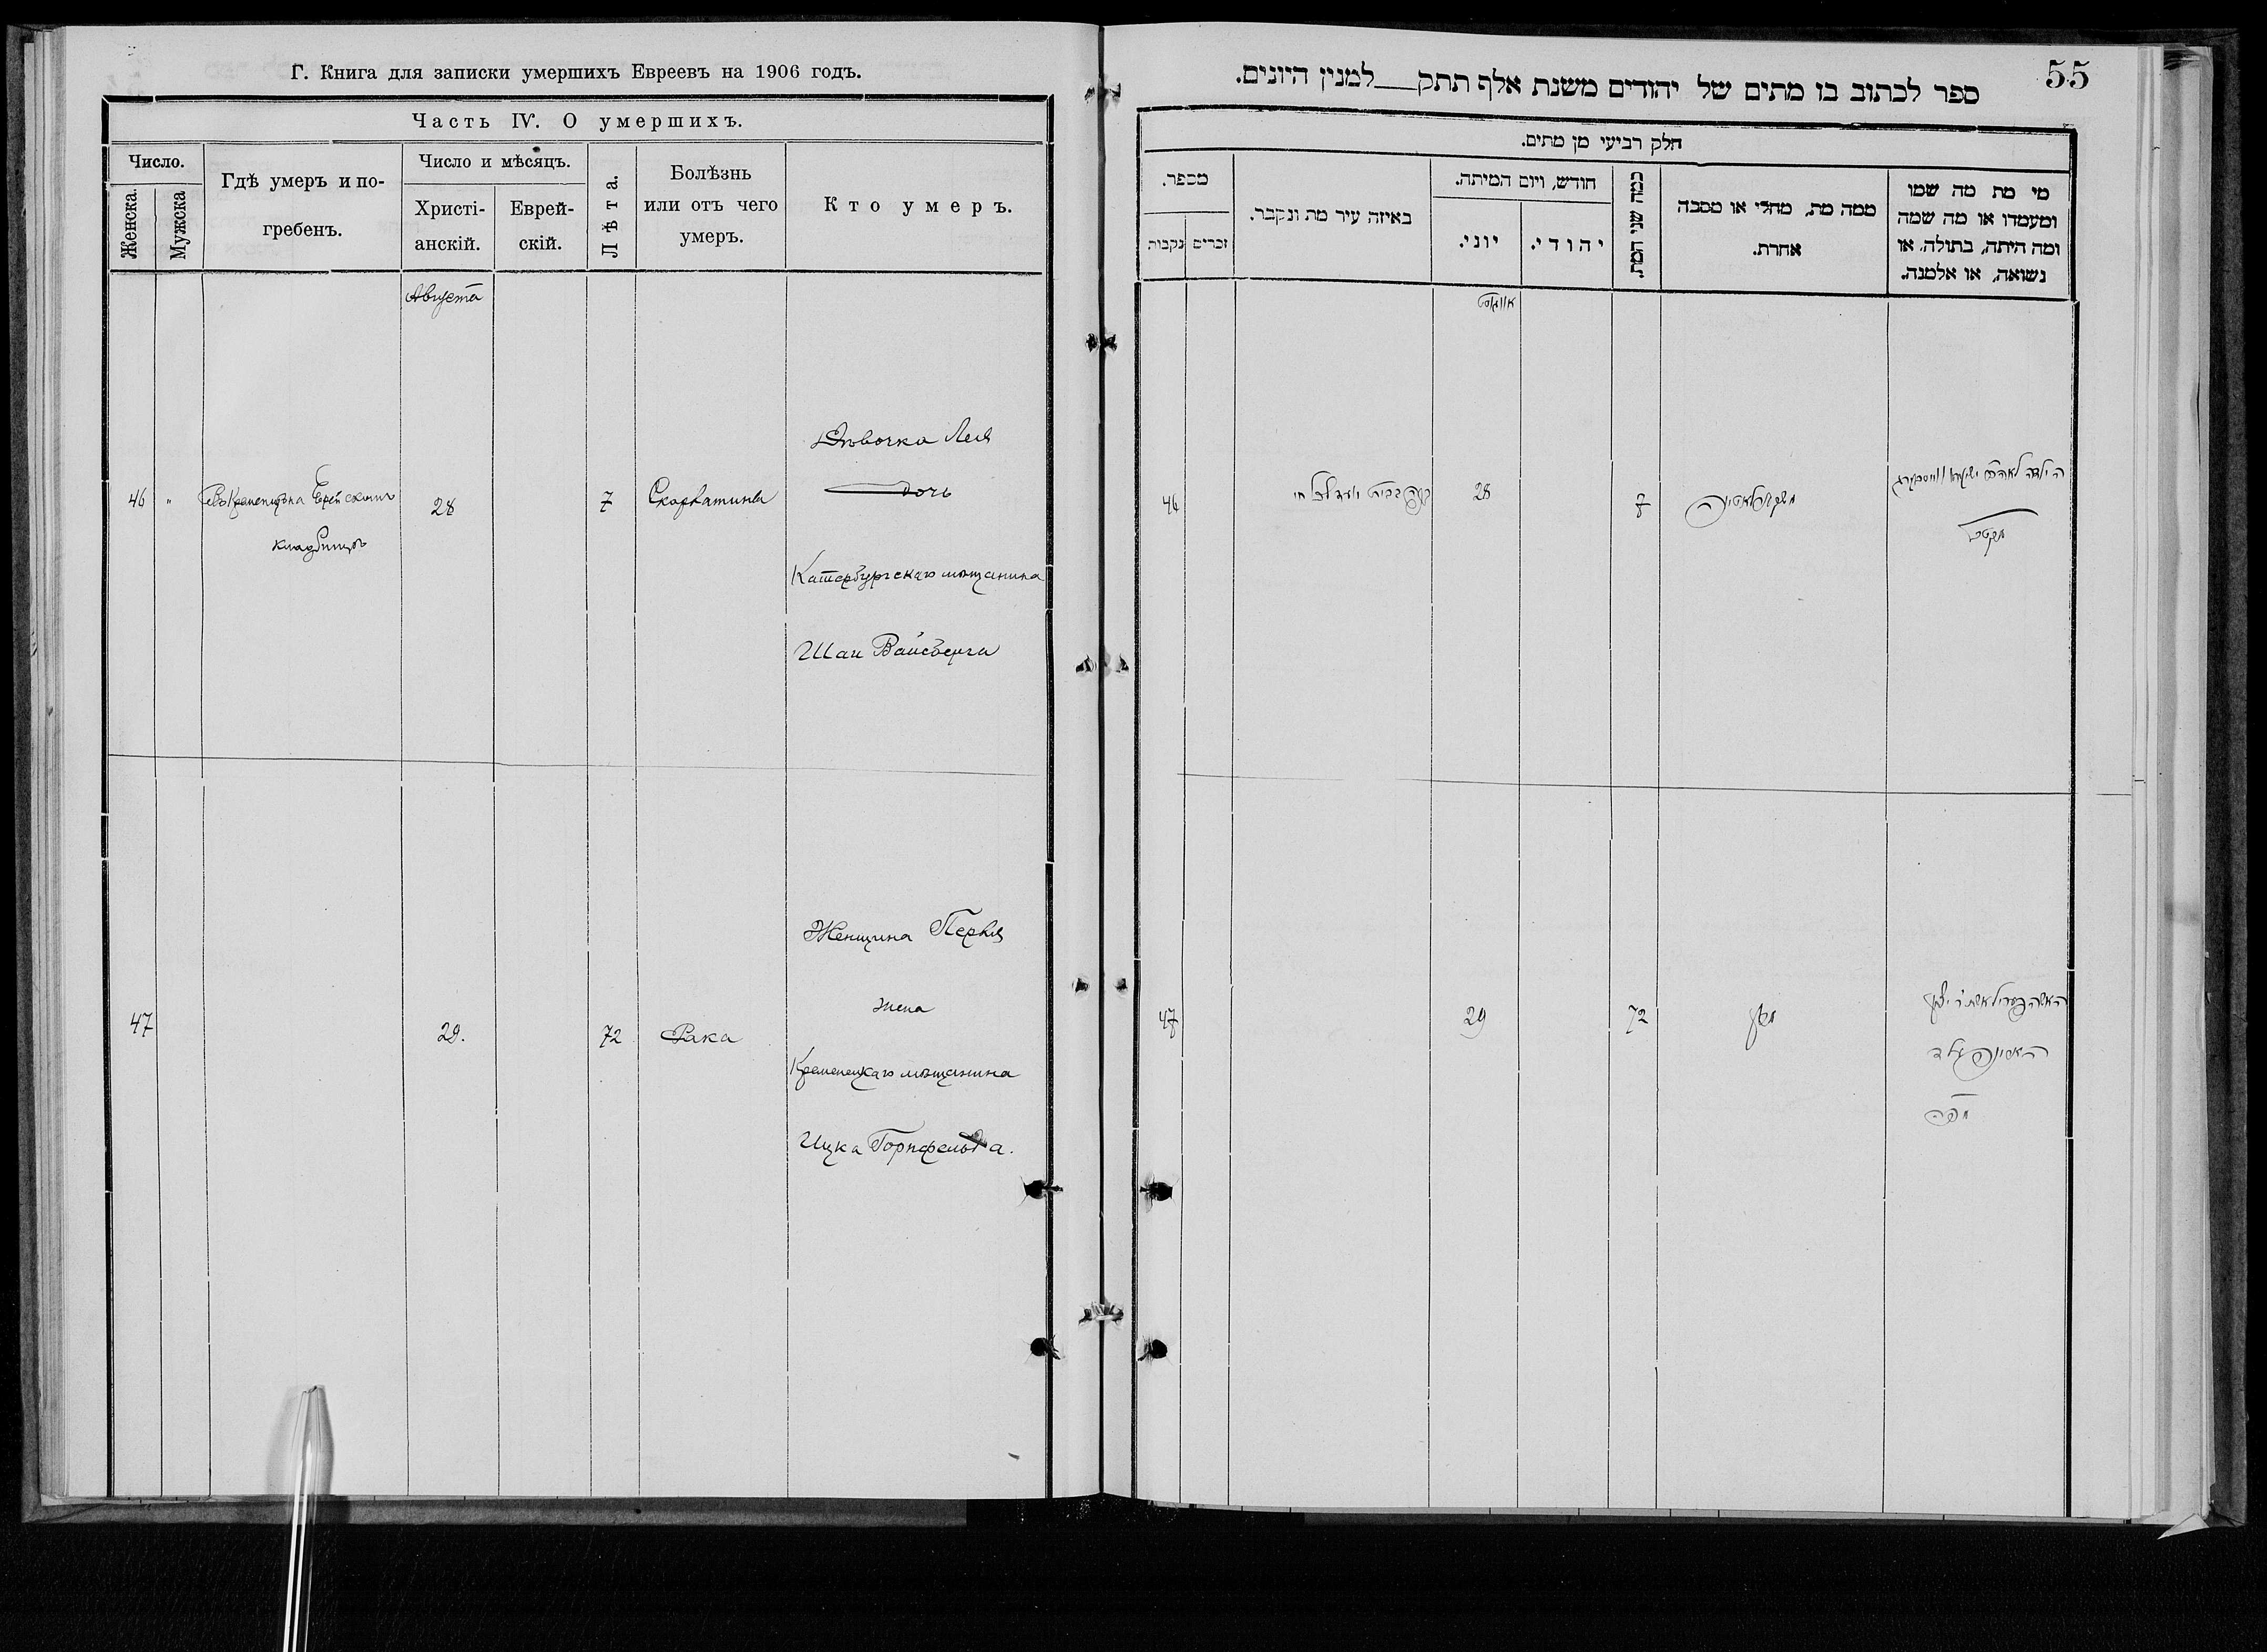 Г. Книга для записки умершихъ Евреевъ на 1906 годъ.
Часть IV. О умершихъ.
Число.
Женска.
Мужска
Гдѣ умеръ и по-
гребенъ.
Число и мѣсяцъ.
Христі-
анскій.
Еврей-
скій.
Лѣта.
Болѣзнь
или отъ чего
умеръ.
Кто умеръ.
Августа
46 "
Еврейскомъ
кладбищѣ
28
7
Скарлатины
Дѣвочка Лея
дочь
Катербургскаго мѣщанина
Шаи Вайсберга
47
29.
72
Рака
Женщина Перля
жена
Кременецкаго мѣщанина
Ицка Горнфельда.
55
ספר לכתוב בו מתים של יהודים משנת אלף תתק למנין היונים.
חלק רביעי מן מתים.
מספר.
נקבות
זכרים
באיזה עיר מת ונקבר.
חודש, ויום המיתה.
יוני.
יהודי.
כמה שני המת.
ממה מת, מחלי או מסבה
אחרת.
מי מת מה שמו
ומעמדו או מה שמה
ומה היתה, בתולה, או
נשואה, או אלמנה.
אווגוסט
46
28
7
הילדה לאה
47
29
72
האשה פערל אשת ר'